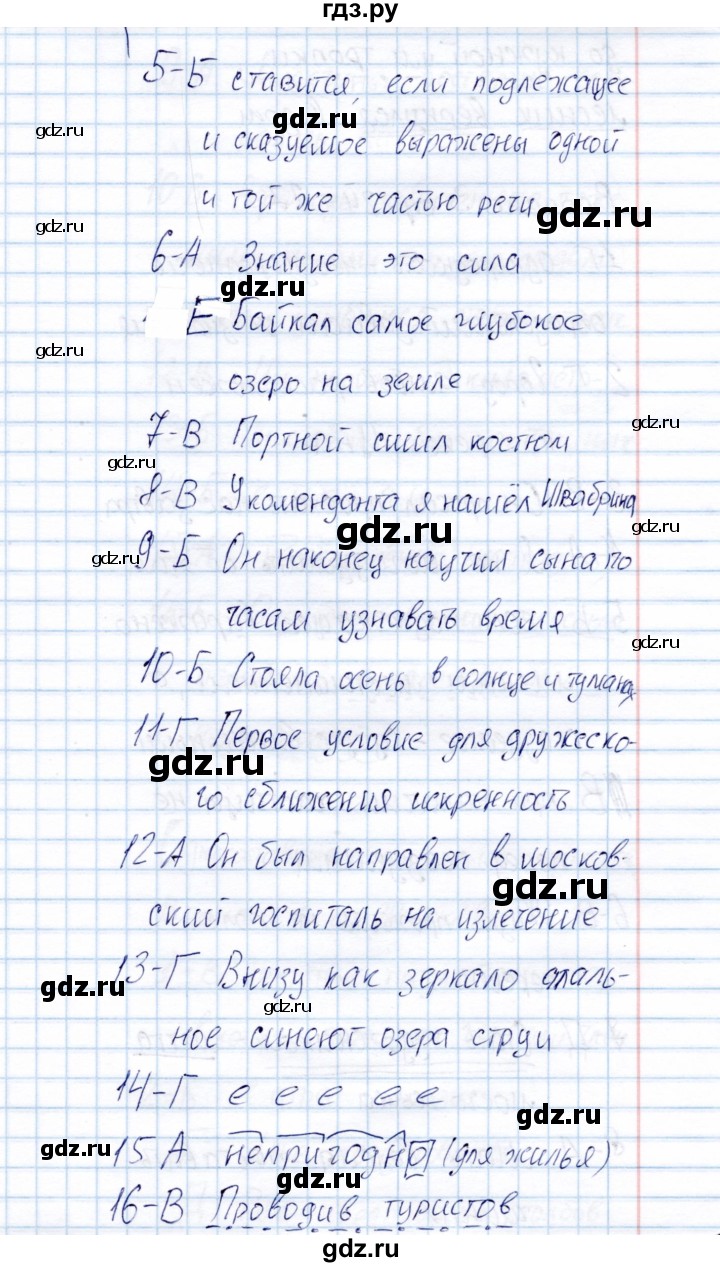 гдз.ру
5-Б ставится, если подлежащее
gdz.ru
gdz.ru
и сказуемое выражены одной
и той же частью речи
gdz.ru
gdz.ru
6-А Знание это сила
gdz.ru
Е Байкал самое глубокое
gdz.ru
озеро на земле
gdz.ru
7-В Портной сшил костюм
gdz.ru
8-В У коменданта я нашёл Швабрина
gdz.ru
gdz.ru
9-Б Он наконец научил сына по
gdz.ru
часам узнавать время
gdz.ru
10-Б Стояла осень в солнце и туманах
11-Г Первое условие для дружеско-
gdz.ru
го сближения искренность
12-А Он был направлен в москов-
gdz.ru
ский госпиталь на излечение
13-Г Внизу как зеркало сталь-
gdz.ru
gdz.ru
ное синеют озера струи
14-Г е е е е е
gdz.ru
15 А непригодно (для жилья)
gdz.ru
gdz.ru
16-В Проводив туристов
gdz.ru